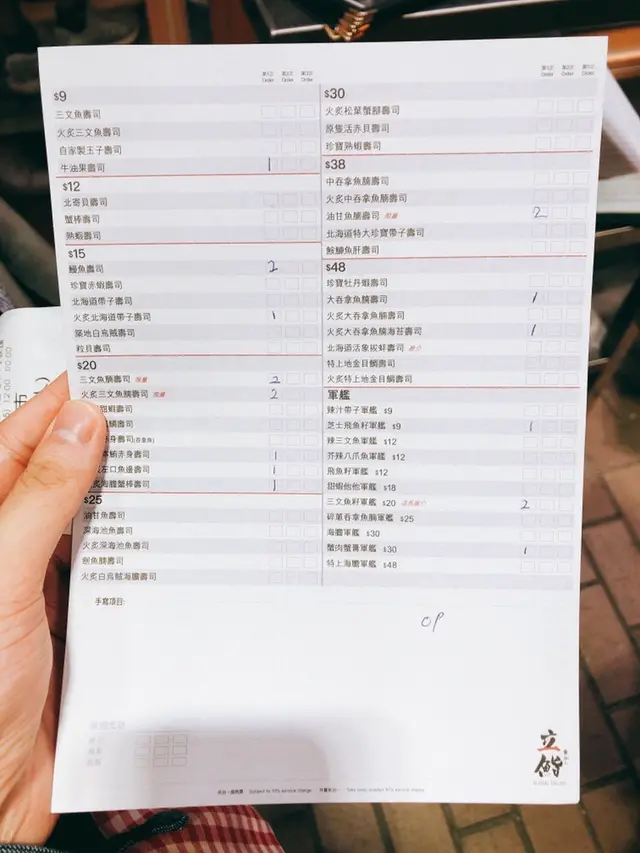 $9
三文魚壽司
火炙三文魚壽司
自家製玉子壽司
牛油果壽司 1
$12
北寄貝壽司
蟹棒壽司
熟蝦壽司
$15
鰻魚壽司 2
珍寶赤蝦壽司
北海道帶子壽司
火炙北海道帶子壽司 1
築地白烏賊壽司
粒貝壽司
$20
三文魚腩壽司 限量 2
火炙三文魚腩壽司 限量 2
甜蝦壽司
鯛壽司
赤身壽司(吞拿魚)
鮪赤身壽司 1
左口魚邊壽司 1
炙海膽蟹棒壽司 1
$25
油甘魚壽司
深海池魚壽司
火炙深海池魚壽司
劍魚腩壽司
火炙白烏賊海膽壽司
手寫項目:
Order Order Order
$30
火炙松葉蟹腳壽司
原隻活赤貝壽司
珍寶熟蝦壽司
$38
中吞拿魚腩壽司
火炙中吞拿魚腩壽司
油甘魚腩壽司 限量 2
北海道特大珍寶帶子壽司
鮟鱇魚肝壽司
$48
珍寶牡丹蝦壽司
大吞拿魚腩壽司 1
火炙大吞拿魚腩壽司
火炙大吞拿魚腩海苔壽司 1
北海道活象拔蚌壽司 推介
特上地金目鯛壽司
火炙特上地金目鯛壽司
軍艦
辣汁帶子軍艦 $9
芝士飛魚籽軍艦 $9 1
辣三文魚軍艦 $12
芥辣八爪魚軍艦 $12
飛魚籽軍艦 $12
甜蝦他他軍艦 $18
三文魚籽軍艦 $20 2
碎蔥吞拿魚腩軍艦 $25
海膽軍艦 $30
蟹肉蟹膏軍艦 $30 1
特上海膽軍艦 $48
Order Order Order
OP
立鮨
Subject to 10% service charge